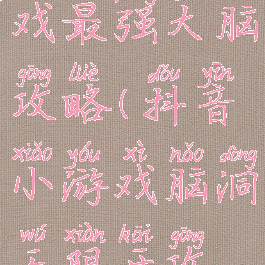 戏最强大脑
gōng lüè dǒu yīn
攻略(抖音
xiǎo yóu xì nǎo dòng
小游戏脑洞
wú xiàn kāi gōng